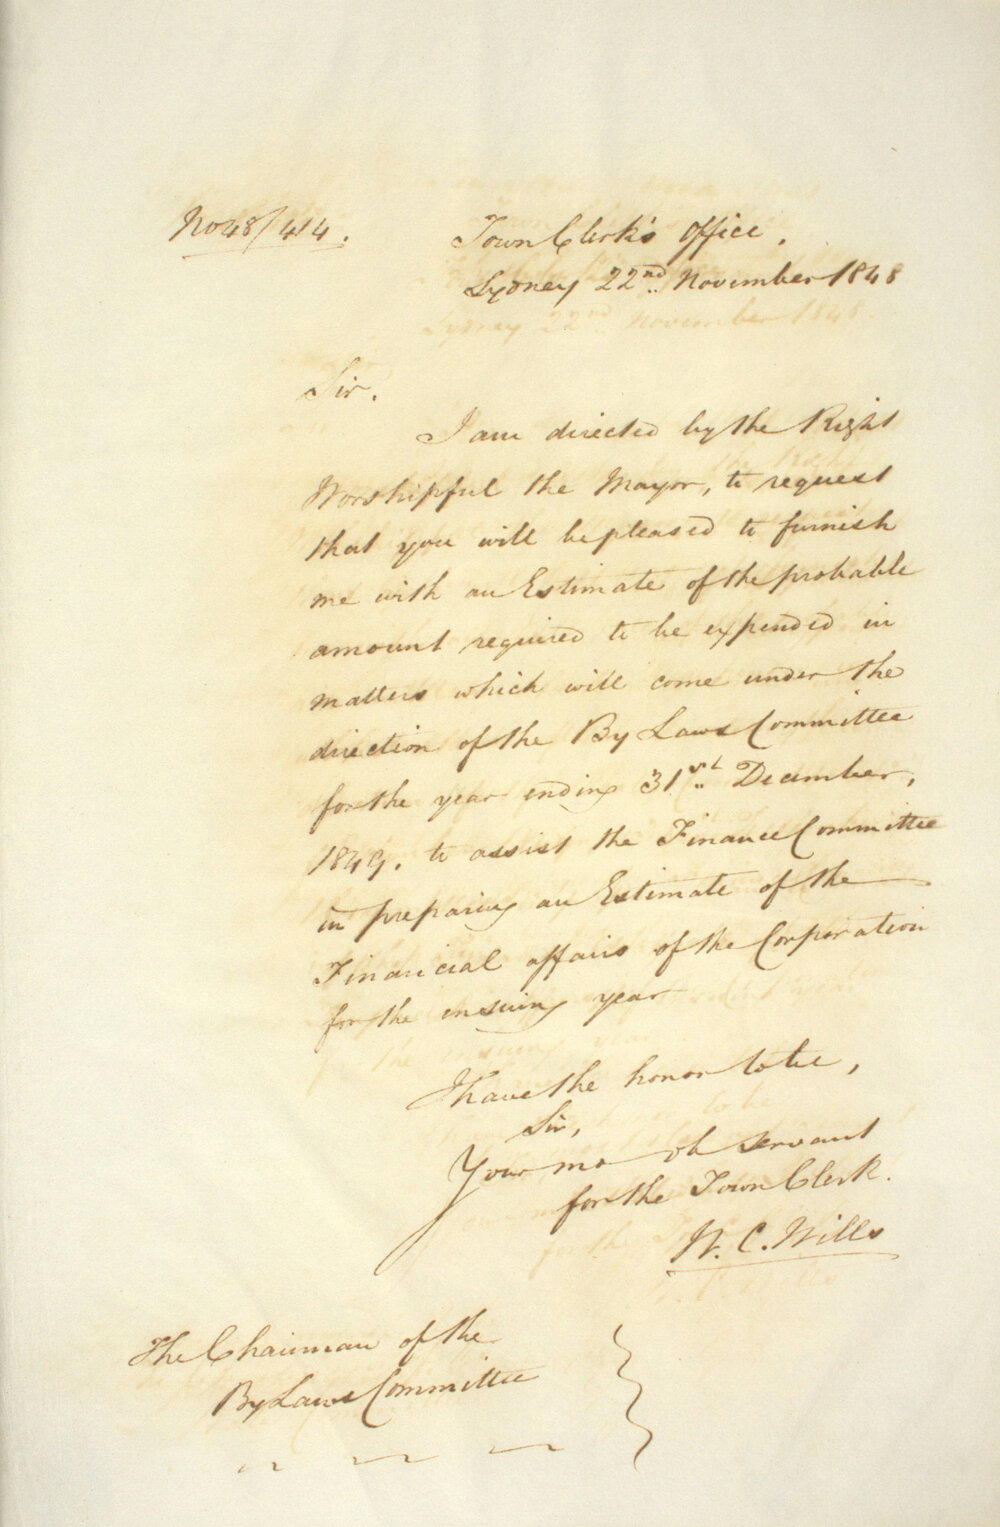 No 48/414.
Town Clerk's Office,
Sydney 22nd November 1848
Sir,
I am directed by the Right
Worshipful the Mayor, to request
that you will be pleased to furnish
me with an Estimate of the probable
amount required to be expended in
matters which will come under the
direction of the By Laws Committee
for the year ending 31st December,
1849. to assist the Finance Committee
in preparing an Estimate of the
Financial affairs of the Corporation
for the ensuing year
I have the honor to be,
Sir,
Your mo ob servant
for the Town Clerk.
W. C. Wills
The Chairman of the
By Laws Committee